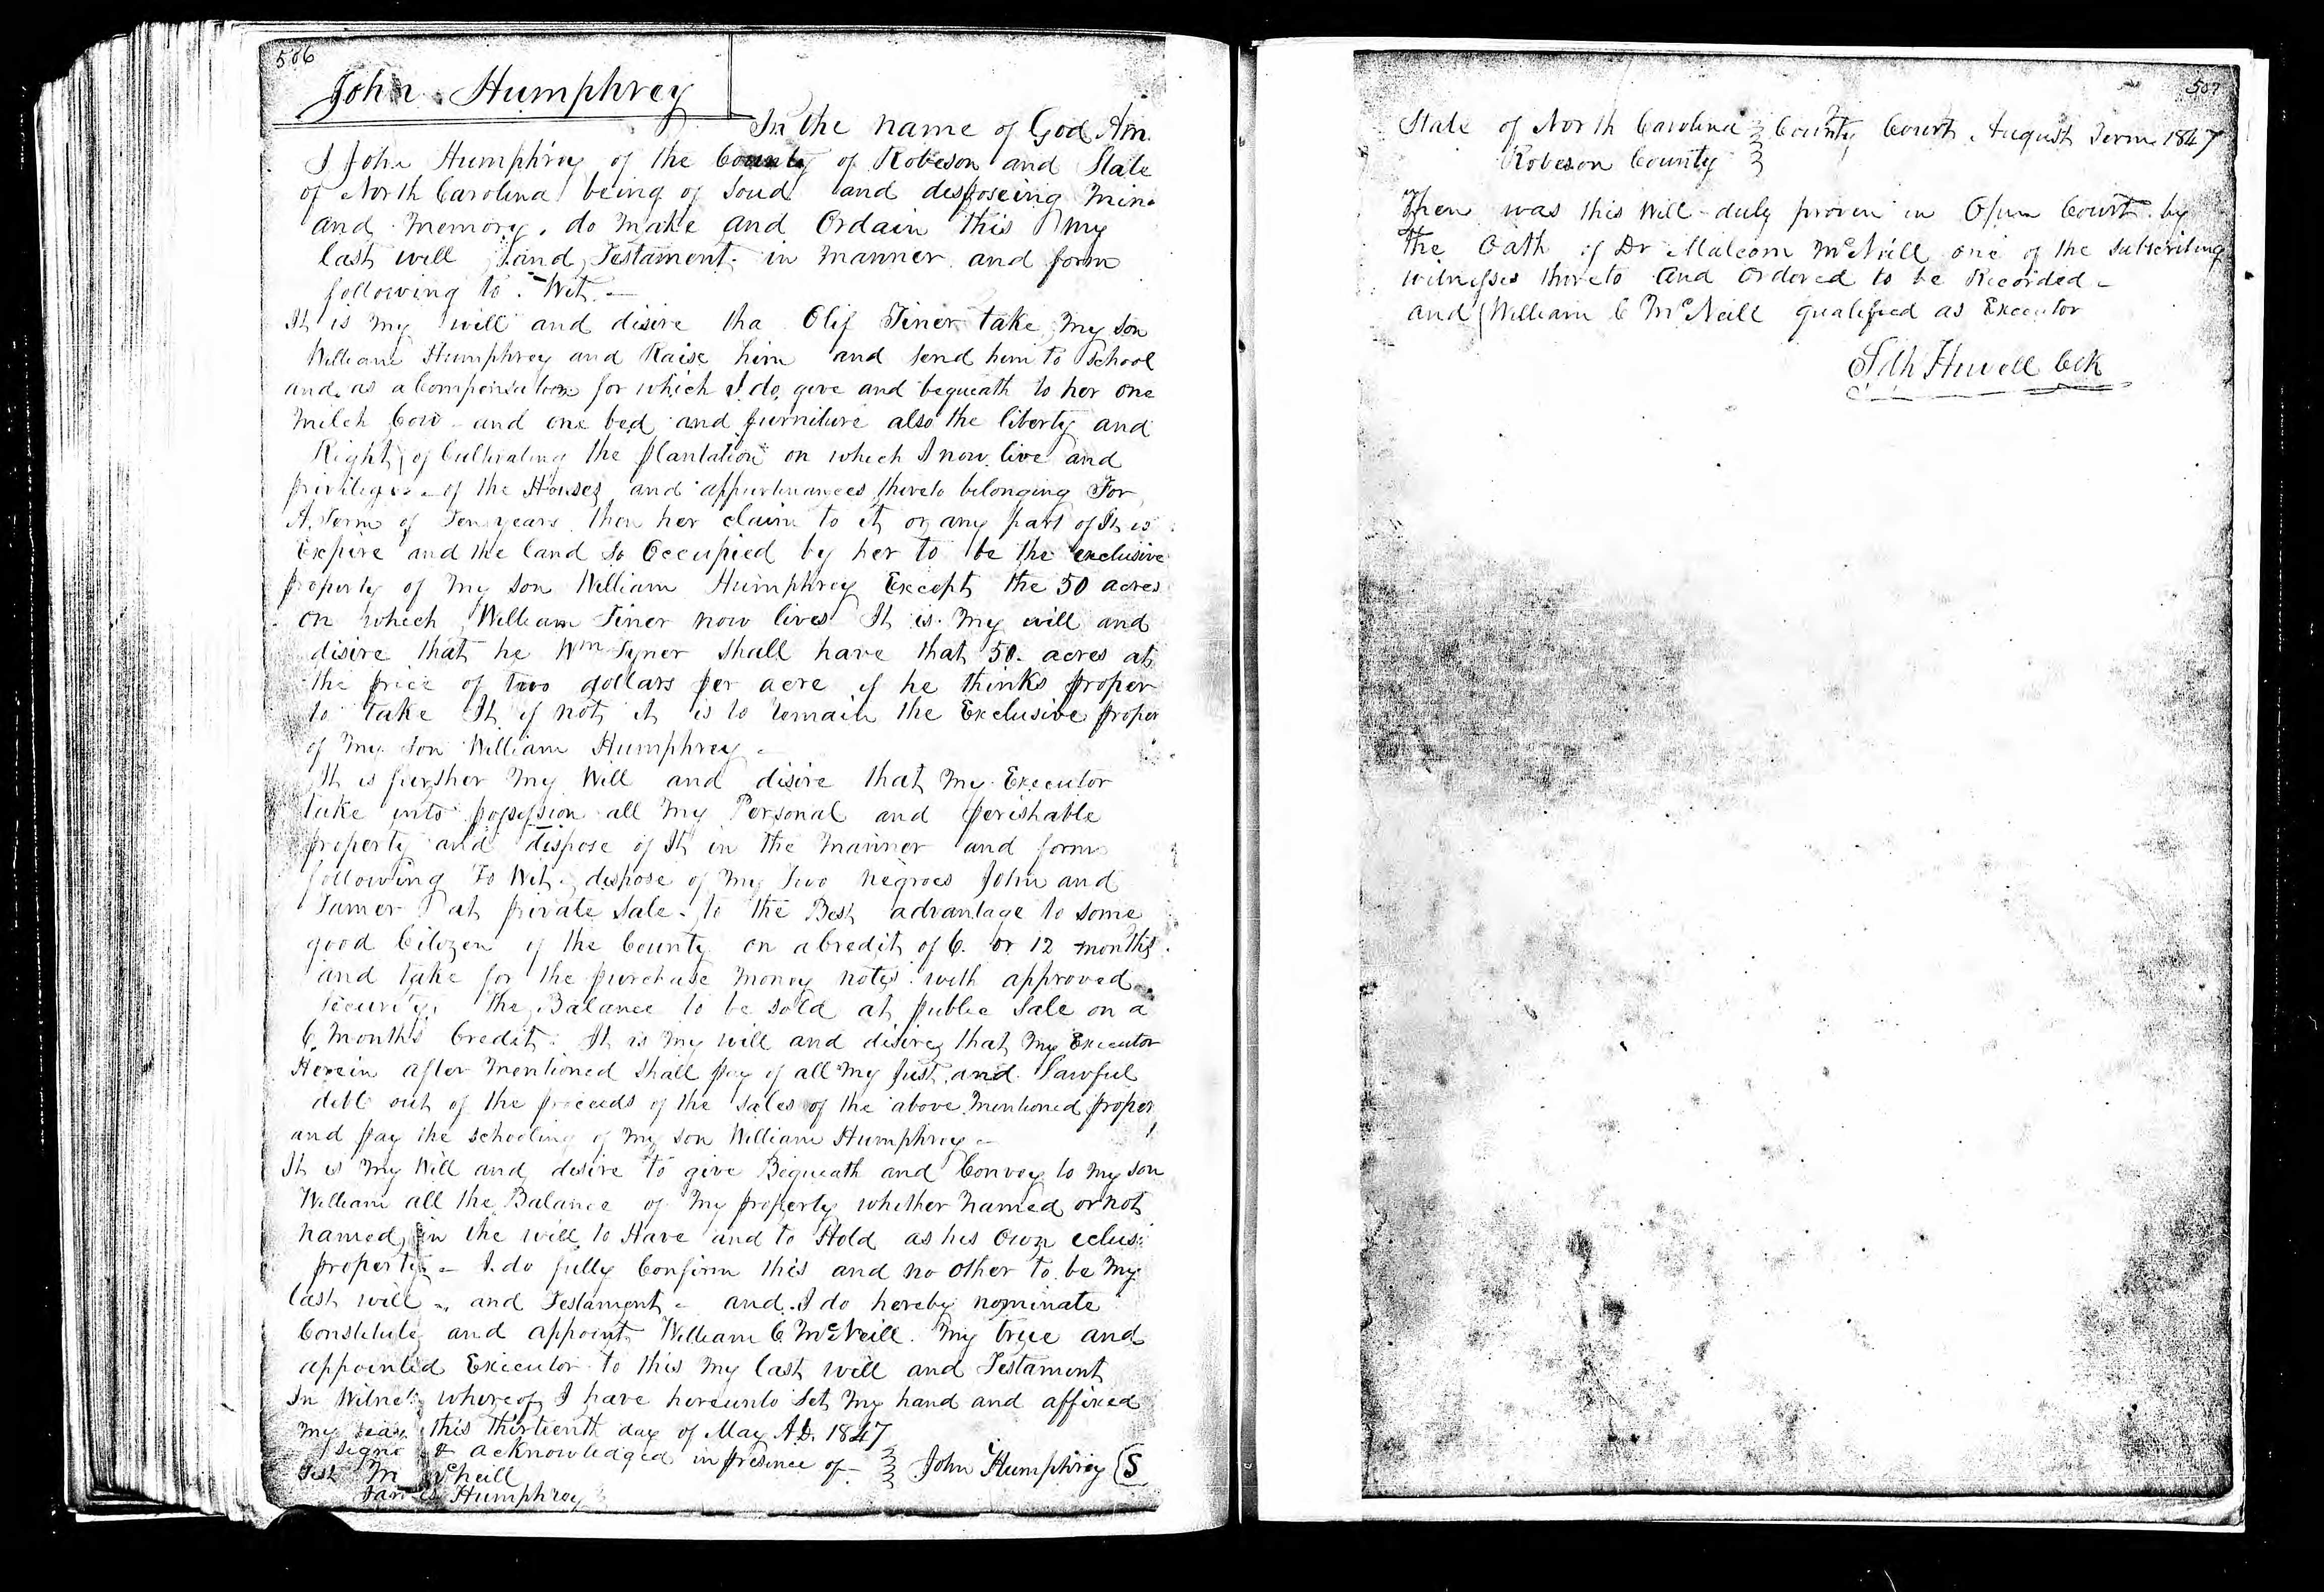 506
John Humphrey
In the name of God Am.
I John Humphrey of the County of Robeson and State
of North Carolina being of soud and disposeing min
and memory, do make and Ordain this my
last will and Testament in manner and form
following to Wit. —
It is my will and disire tha Olif Tiner take my son
William Humphrey and Raise him and send him to School
and as a Compensation for which I do, give and bequeath to her one
milch Cow and one bed and furniture also the liberty and
Right of Cultivating the plantation on which I now live and
privileges of the Houses and appurtenances thereto belonging For
A. Term of Ten years then her claim to it or any part of It is
Expire and the land so Occupied by her to be the exclusive
property of my son William Humphrey Except the 50 acres
on which William Tiner now lives It is my will and
disire that he Wm Tyner shall have that 50. acres at
the price of two dollars per acre if he thinks proper
to take It if not it is to remain the Exclusive proper
of my son William Humphrey —
It is further my Will and disire that my Executor
take into possession all my Personal and perishable
property and dispose of It in the manner and form
following To Wit, dispose of my Two negroes John and
Tamer at private sale to the Best advantage to some
good Citozen of the County on a Credit of 6. or 12 months.
and take for the purchase money notes with approved
security, The Balance to be sold at public sale on a
6 months Credit. It is my will and disire that my Executor
Herein after mentioned shall pay of all my just and Lawful
debt out of the proceeds of the sales of the above mentioned proper
and pay the schooling of my son William Humphrey —
It is my Will and desire to give Bequeath and Convey to my son
William all the Balance of my property whether named or not
named in the will to Have and to Hold as his own eclusi
property — I do fully Confirm this and no other to be my
last will and Testament — and I do hereby nominate
Constitute and appoint William C McNeill. my true and
appointed Executor to this my last will and Testament
In Witness whereof I have hereunto set my hand and affixed
my seal this thirteenth day of May A.D. 1847
signd & acknowledged in presence of — John Humphrey S
Test M McNeill
Humphrey
507
State of North Carolina County Court August Term 1847
Robeson County
Then was this Will duly proven in Open Court by
the Oath of Dr Malcom McNeill one of the subscribing
witnesses thereto and Ordered to be Recorded —
and William C McNeill qualified as Executor
Sth Howell Clk